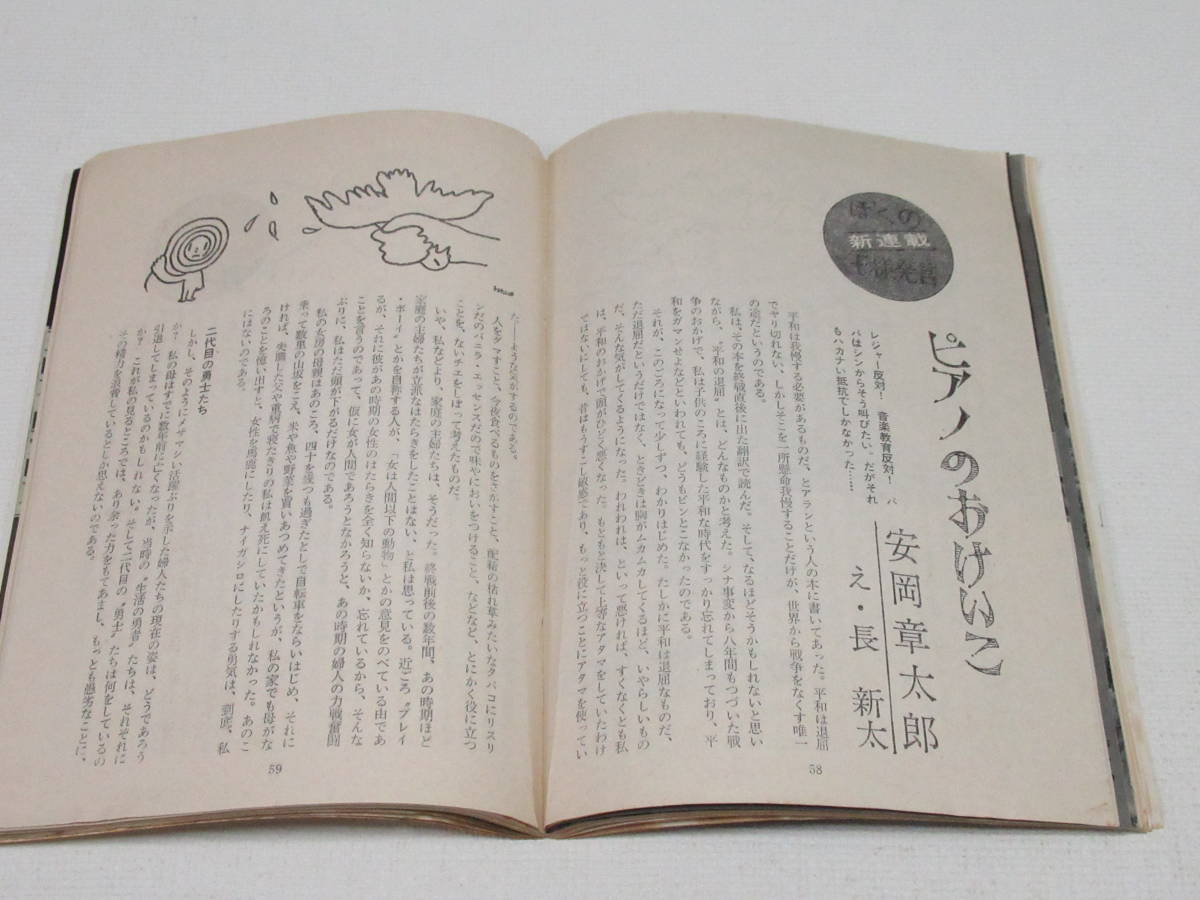 ぼくの
新連載
王様発言
ピアノのおけいこ
安岡章太郎
え・長 新太
レジャー反対! 音楽教育反対! パ
パはシンからそう叫びたい。だがそれ
もハカナい抵抗でしかなかった……
平和は我慢する必要があるものだ、とアランという人の本に書いてあった。平和は退屈
でヤリ切れない、しかしそこを一所懸命我慢することだけが、世界から戦争をなくす唯一
の途だというのである。
私は、その本を終戦直後に出た翻訳で読んだ。そして、なるほどそうかもしれないと思い
ながら、〝平和の退屈〟とは、どんなものかと考えた。シナ事変から八年間もつづいた戦
争のおかげで、私は子供のころに経験した平和な時代をすっかり忘れてしまっており、平
和をガマンせよなどといわれても、どうもピンとこなかったのである。
それが、このごろになって少しずつ、わかりはじめた。たしかに平和は退屈なものだ、
ただ退屈だというだけではなく、ときどきは胸がムカムカしてくるほど、いやらしいもの
だ、そんな気がしてくるようになった。われわれは、といって悪ければ、すくなくとも私
は、平和のおかげで頭がひどく悪くなった。もともと決して上等なアタマをしていたわけ
ではないにしても、昔はもうすこし敏感であり、もっと役に立つことにアタマを使ってい
58
た――ような気がするのである。
人をダマすこと、今夜食べるものをさがすこと、配給の枯れ草みたいなタバコにリスリ
ンだのバニラ・エッセンスだので味やにおいをつけること、などなど、とにかく役に立つ
ことを、ないチエをしぼって考えたものだ。
いや、私などより、家庭の主婦たちは、そうだった。終戦前後の数年間、あの時期ほど
家庭の主婦たちが立派なはたらきをしたことはない、と私は思っている。近ごろ〝プレイ
・ボーイ〟とかを自称する人が、「女は人間以下の動物」とかの意見をのべている由であ
るが、それに彼があの時期の女性のはたらきを全く知らないか、忘れているから、そんな
ことを言うのであって、仮に女が人間であろうとなかろうと、あの時期の婦人の力戦奮闘
ぶりに、私はただ頭が下がるだけなのである。
私の女房の母親はあのころ、四十を幾つも過ぎたとしで自転車をならいはじめ、それに
乗って数里の山坂をこえ、米や魚や野菜を買いあつめてきたというが、私の家でも母がな
ければ、失職した父や重病で寝たきりの私は飢え死にしていたかもしれなかった。あのこ
ろのことを憶い出すと、女性を馬鹿にしたり、ナイガシロにしたりする勇気は、到底、私
にはないのである。
二代目の勇士たち
しかし、そのようにメザマシい活躍ぶりを示した婦人たちの現在の姿は、どうであろう
か? 私の母はすでに数年前に亡くなったが、当時の〝生活の勇者〟たちは、それぞれに
引退してしまっているのかもしれない。そして二代目の〝勇士〟たちは何をしているの
か? これが私の見るところでは、あり余った力をもてあまし、もっとも愚劣なことに、
その精力を浪費しているとしか思えないのである。
59